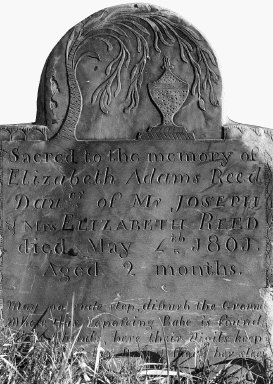 Sacred to the memory of
Elizabeth Adams Reed
Daur. of Mr JOSEPH
& Mrs ELIZABETH REED
died May 4th 1801.
Aged 2 months.
May no rude step, disturb the Ground
Where this Babe is found,
here their Vigils keep
her sleep